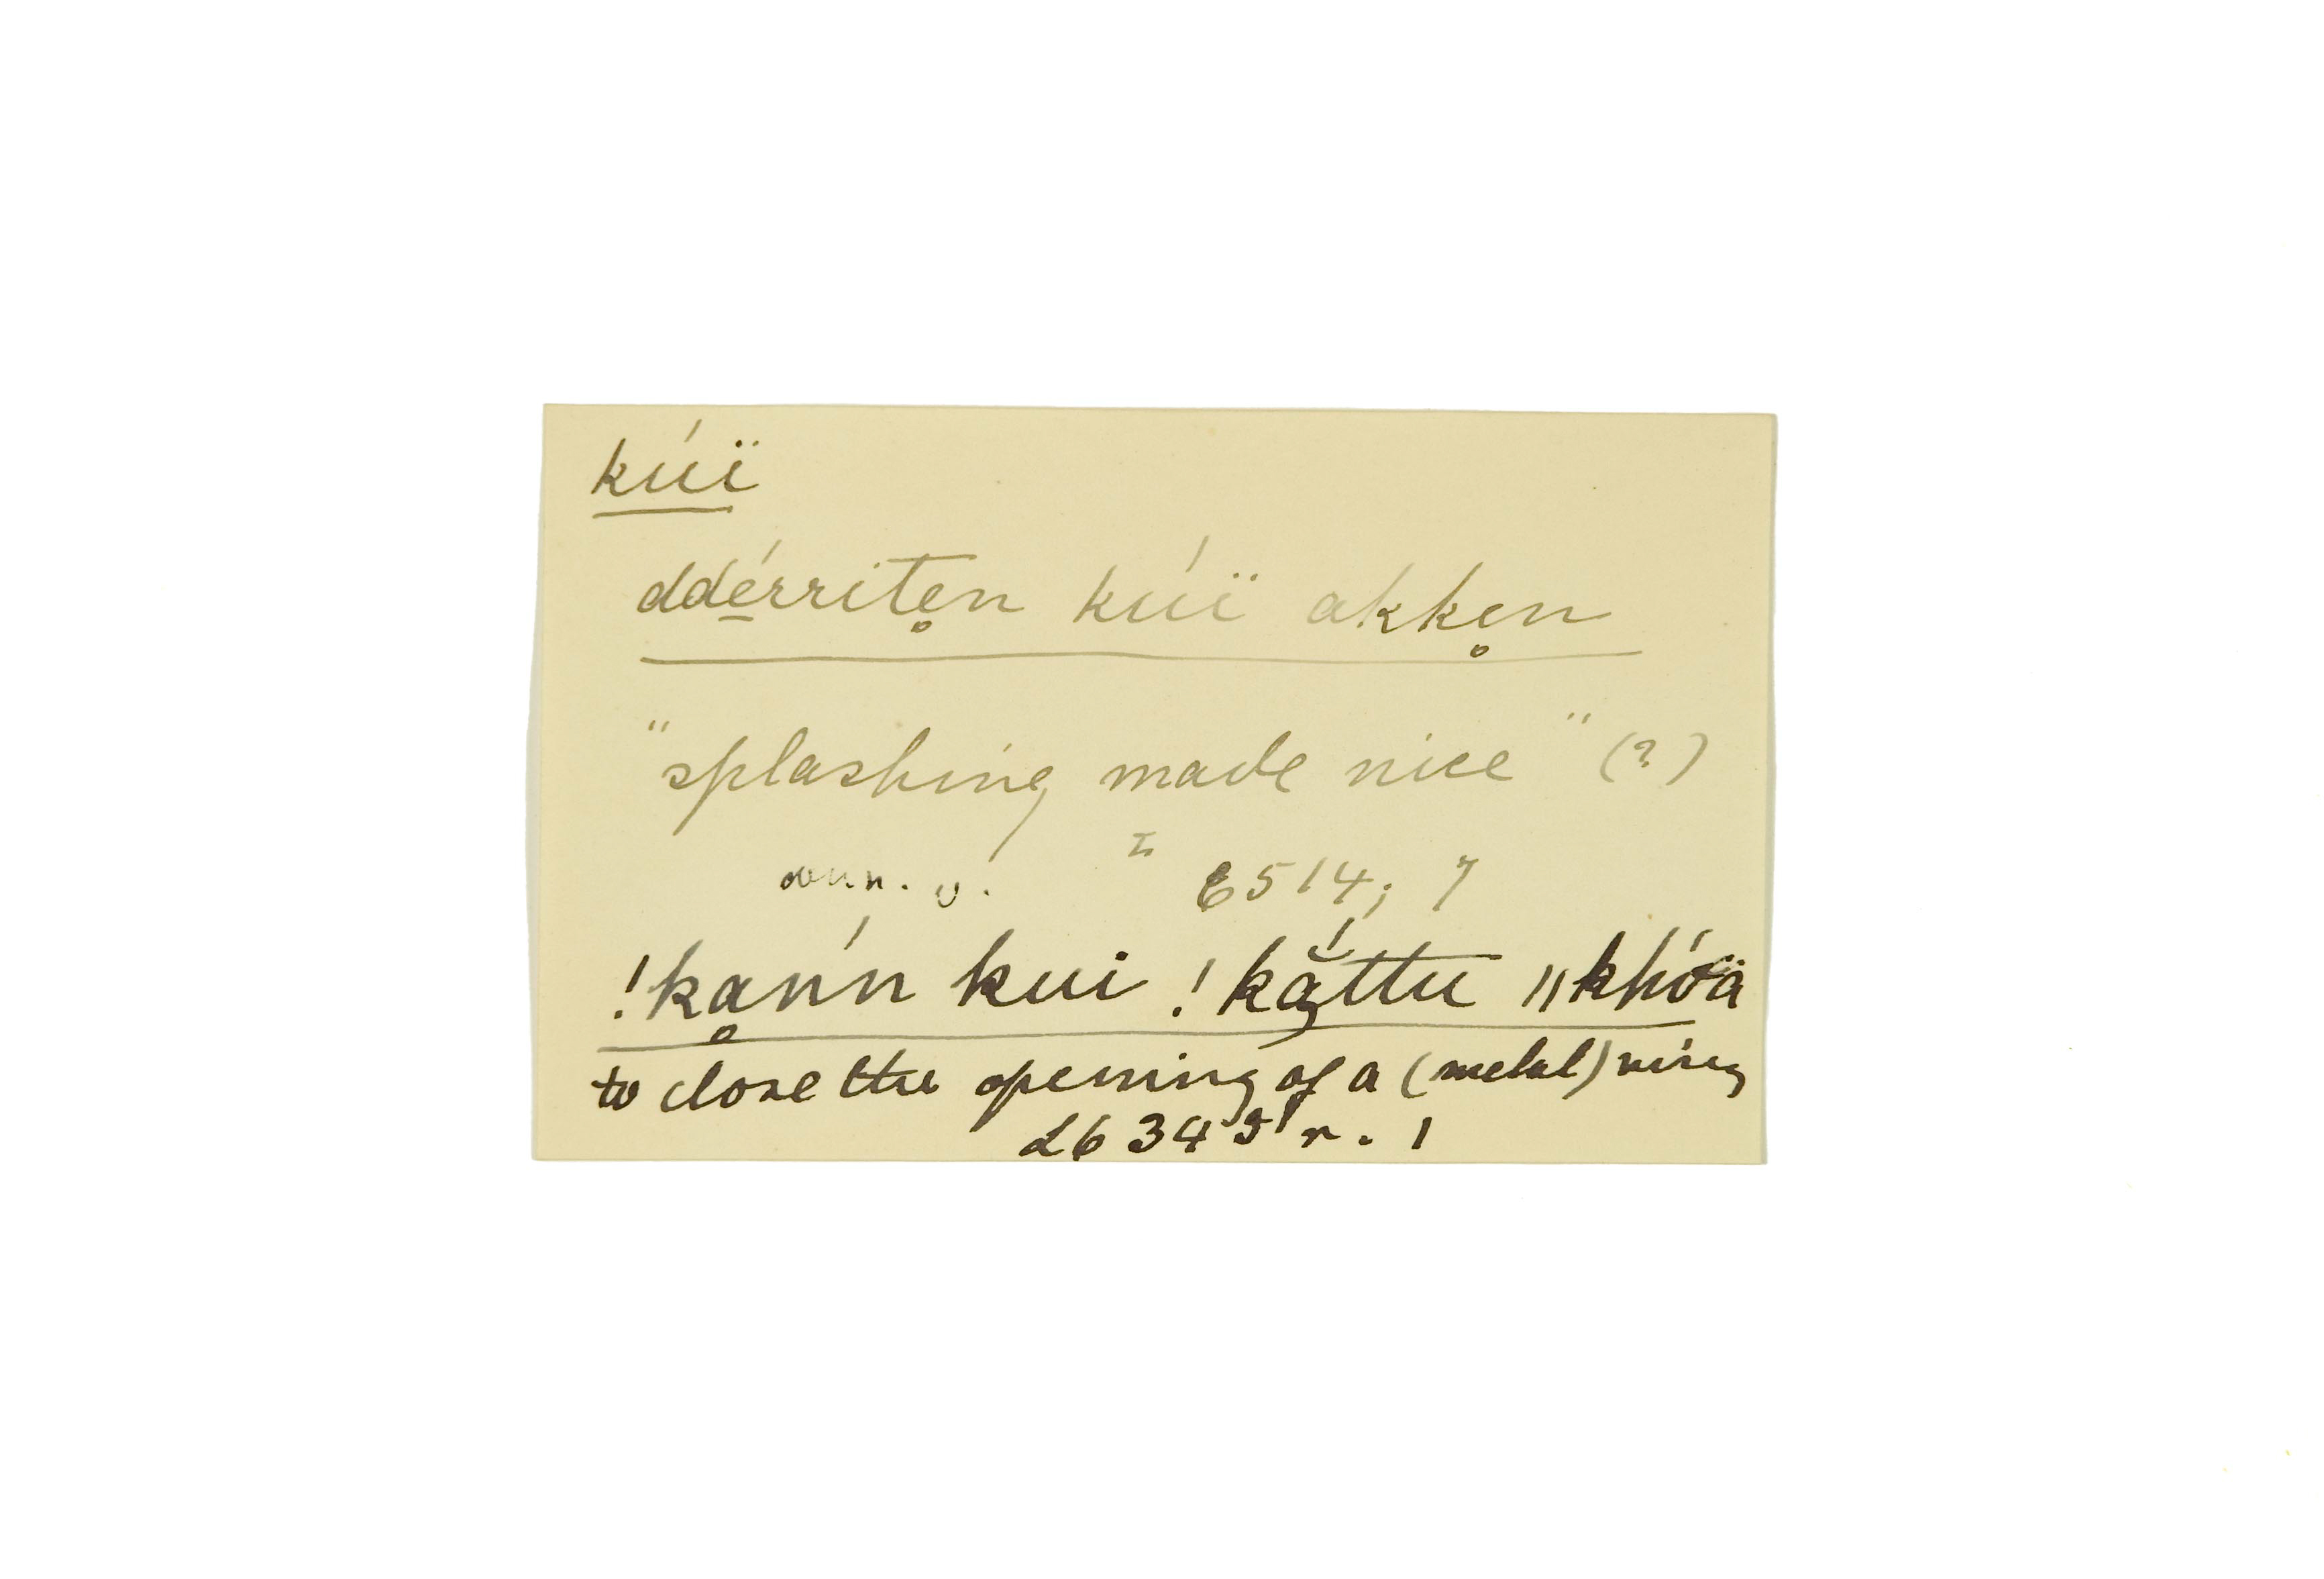 kúï
ddé̱rrite̥n kúï akke̥n
"splashing made nice" (?)
6514; 7
!kḁńn kui !kắttu ǁkhóä
to close the opening of a (metal) ring
L6 345 r. 1